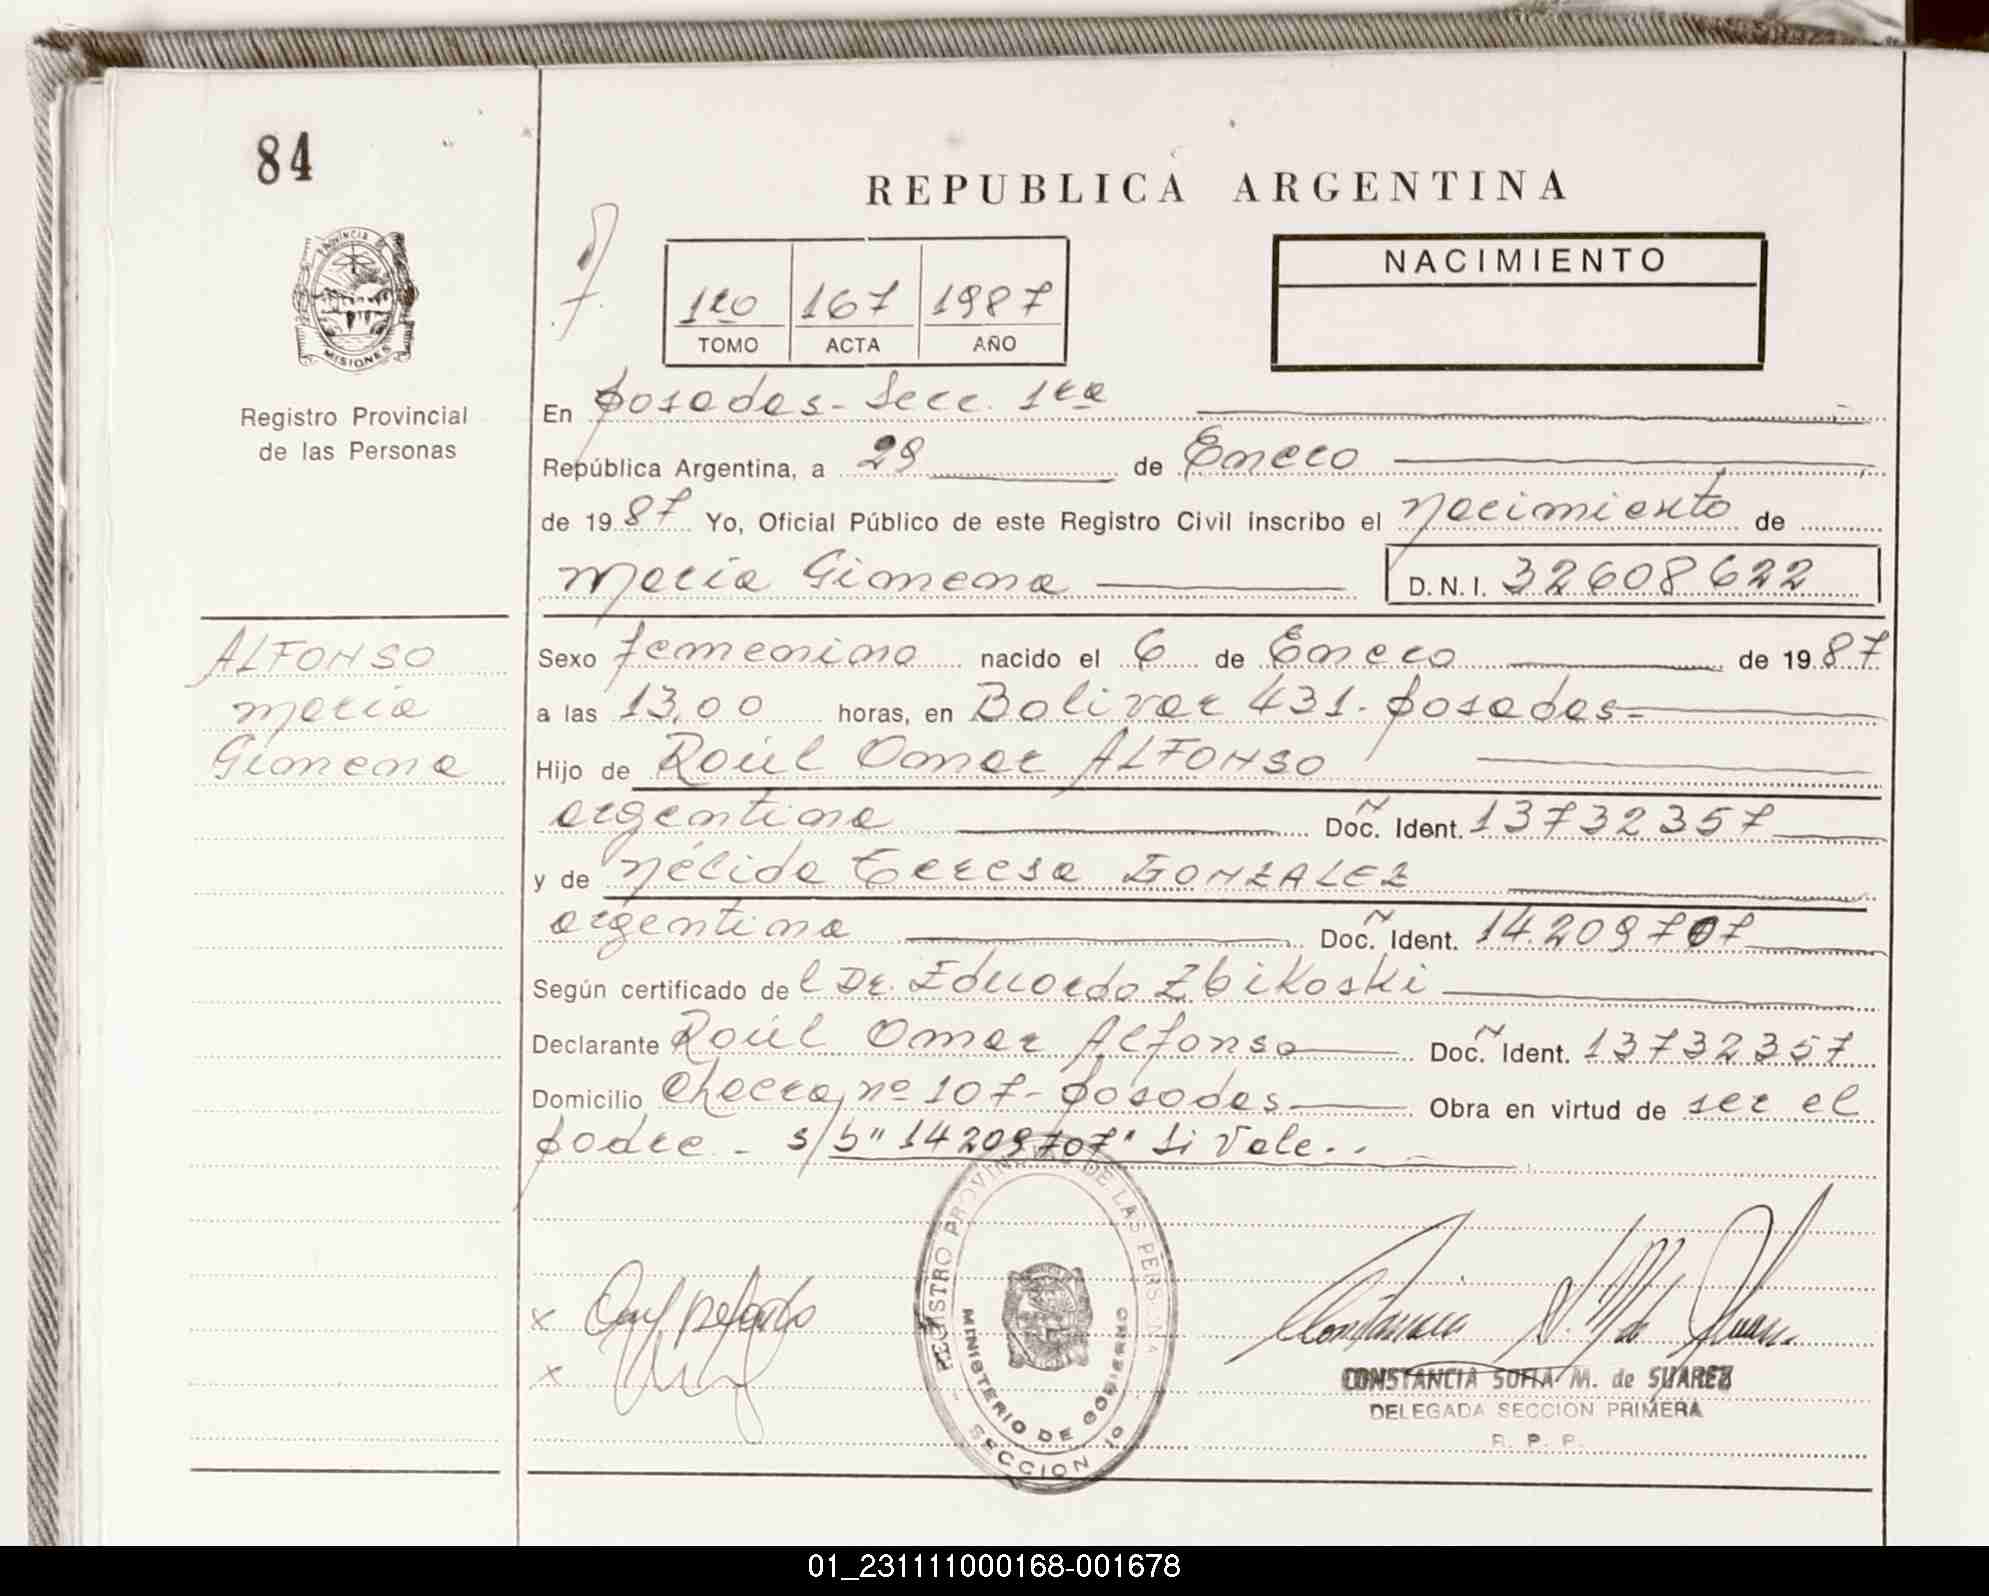 84
REPUBLICA ARGENTINA
PROVINCIA DE
MISIONES
1ro 167 1987
TOMO ACTA AÑO
NACIMIENTO
Registro Provincial
de las Personas
En Posadas - Secc. 1ra
República Argentina, a 29 de Enero
de 1987 Yo, Oficial Público de este Registro Civil inscribo el nacimiento de
María Gimena D.N.I. 32608622
ALFONSO
María
Gimena
Sexo femenino nacido el 6 de Enero de 1987
a las 13,00 horas, en Bolivar 431. Posadas-
Hijo de Raúl Omar ALFONSO
argentina Doc. Ident. 13732357
y de Nélida Teresa GONZALEZ
argentina Doc. Ident. 14.209707
Según certificado del Dr. Eduardo Zbikoski
Declarante Raúl Omar Alfonso Doc. Ident. 13732357
Domicilio Chacra nº 107- Posadas Obra en virtud de ser el
padre - s/b "14209707" Si Vale..
REGISTRO PROVINCIAL DE LAS PERSONAS
MINISTERIO DE GOBIERNO
SECCION 1º
x
x
CONSTANCIA SOFIA M. de SUAREZ
DELEGADA SECCION PRIMERA
R. P. P.
01_231111000168-001678